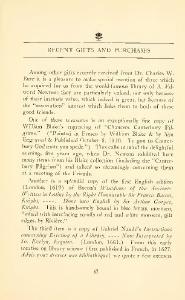 RECENT GIFTS AND PURCHASES
Among other gifts recently received from Dr. Charles W.
it is a pleasure to make special mention of three which
he acquired for us from the world-famous library of A. Ed-
ward Newton; they are particularly valued, not only because
of their intrinsic value, which indeed is great, but because of
the "association" interest which links them to both of these
good friends.
One of these treasures is an exceptionally fine copy of
William Blake's engraving of "Chaucers Canterbury Pil-
grims." ("Painted in Fresco by William Blake & by him
Engraved & Published October 8, 1810. To goe to Canter-
bury God mote you spede.") Those
evening, five years ago, when Dr. Newton exhibited here
many items from his Blake collection (including the "Canter-
bury Pilgrims") and talked so charmingly concerning them
at a meeting of the Friends.
Another is a splendid copy of the first English edition
(London, 1619) of Bacon's Wisedome of the Ancients.
Written in Latine by the Right Honourable Sir Francis Bacon,
Knight, Done into English by Sir Arthur Gorges,
Knight. This is handsomely bound in blue
"inlaid with interlacing of red and white morocco, gilt
edges, by Rivière."
The third item is a copy of Gabriel Naudé's Instructions
concerning Erecting of a Library, Now Interpreted by
Jo. Evelyn, Esquire. (London, 1661.) From this early
treatise on library science (first published in French, in 1627,
Advis pour dresser une bibliothèque) we quote a few extracts
67